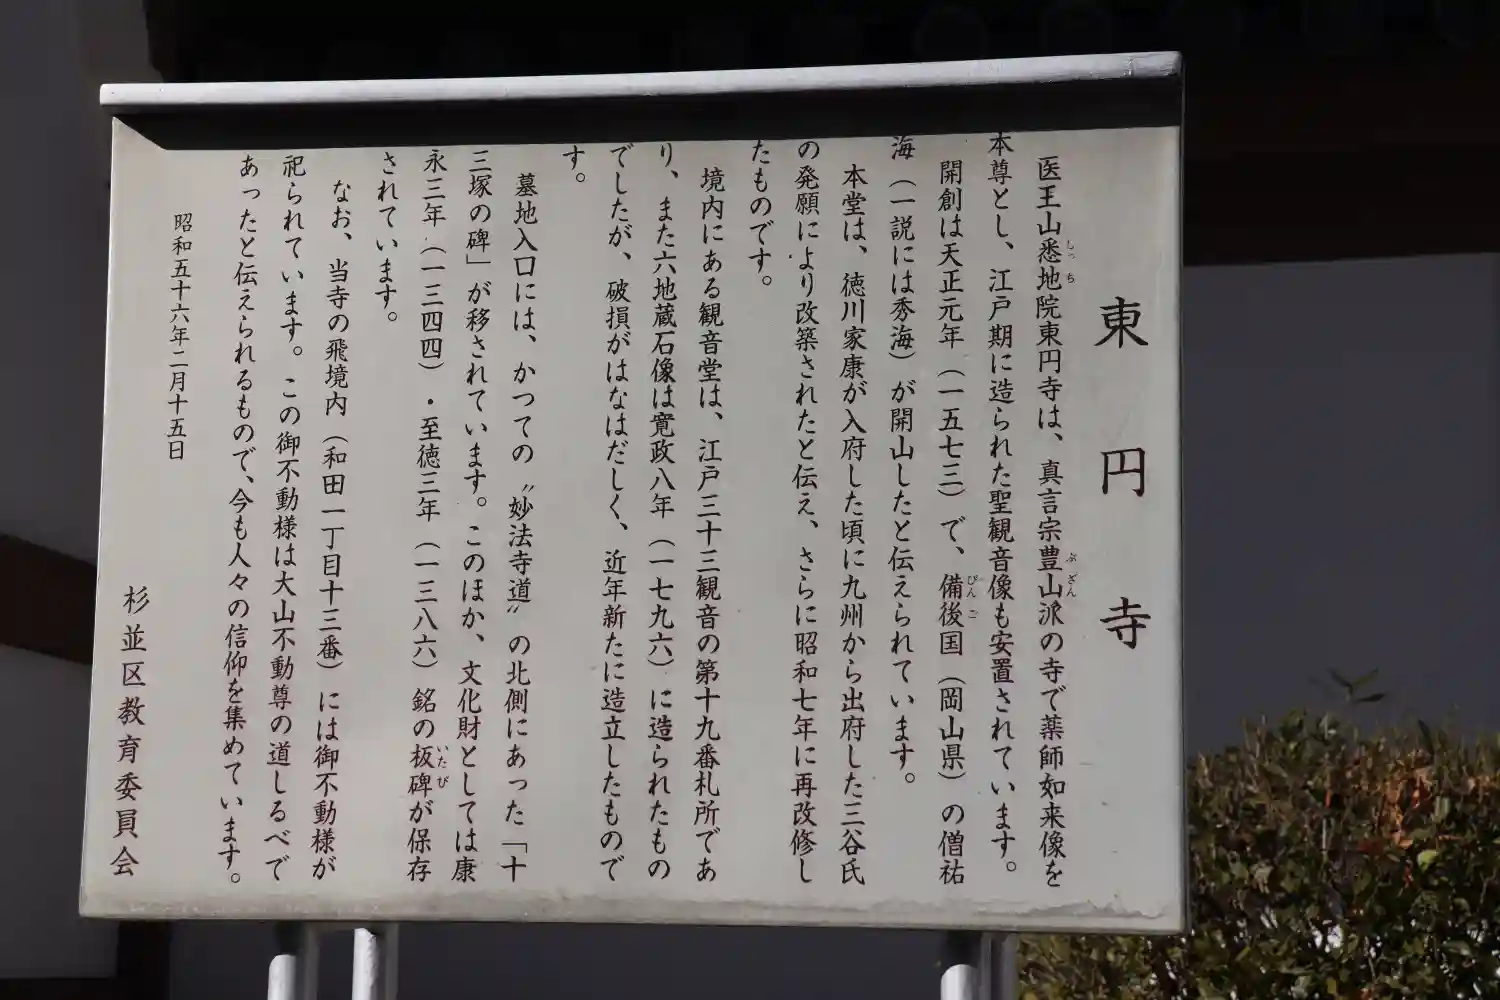 東円寺
医王山悉地院東円寺は、真言宗豊山派の寺で薬師如来像を
本尊とし、江戸期に造られた聖観音像も安置されています。
開創は天正元年（一五七三）で、備後国（岡山県）の僧祐
海（一説には秀海）が開山したと伝えられています。
本堂は、徳川家康が入府した頃に九州から出府した三谷氏
の発願により改築されたと伝え、さらに昭和七年に再改修し
たものです。
境内にある観音堂は、江戸三十三観音の第十九番札所であ
り、また六地蔵石像は寛政八年（一七九六）に造られたもの
でしたが、破損がはなはだしく、近年新たに造立したもので
す。
墓地入口には、かつての〝妙法寺道〟の北側にあった「十
三塚の碑」が移されています。このほか、文化財としては康
永三年（一三四四）・至徳三年（一三八六）銘の板碑が保存
されています。
なお、当寺の飛境内（和田一丁目十三番）には御不動様が
祀られています。この御不動様は大山不動尊の道しるべで
あったと伝えられるもので、今も人々の信仰を集めています。
昭和五十六年二月十五日
杉並区教育委員会
しっち
ぶざん
びんご
いたび